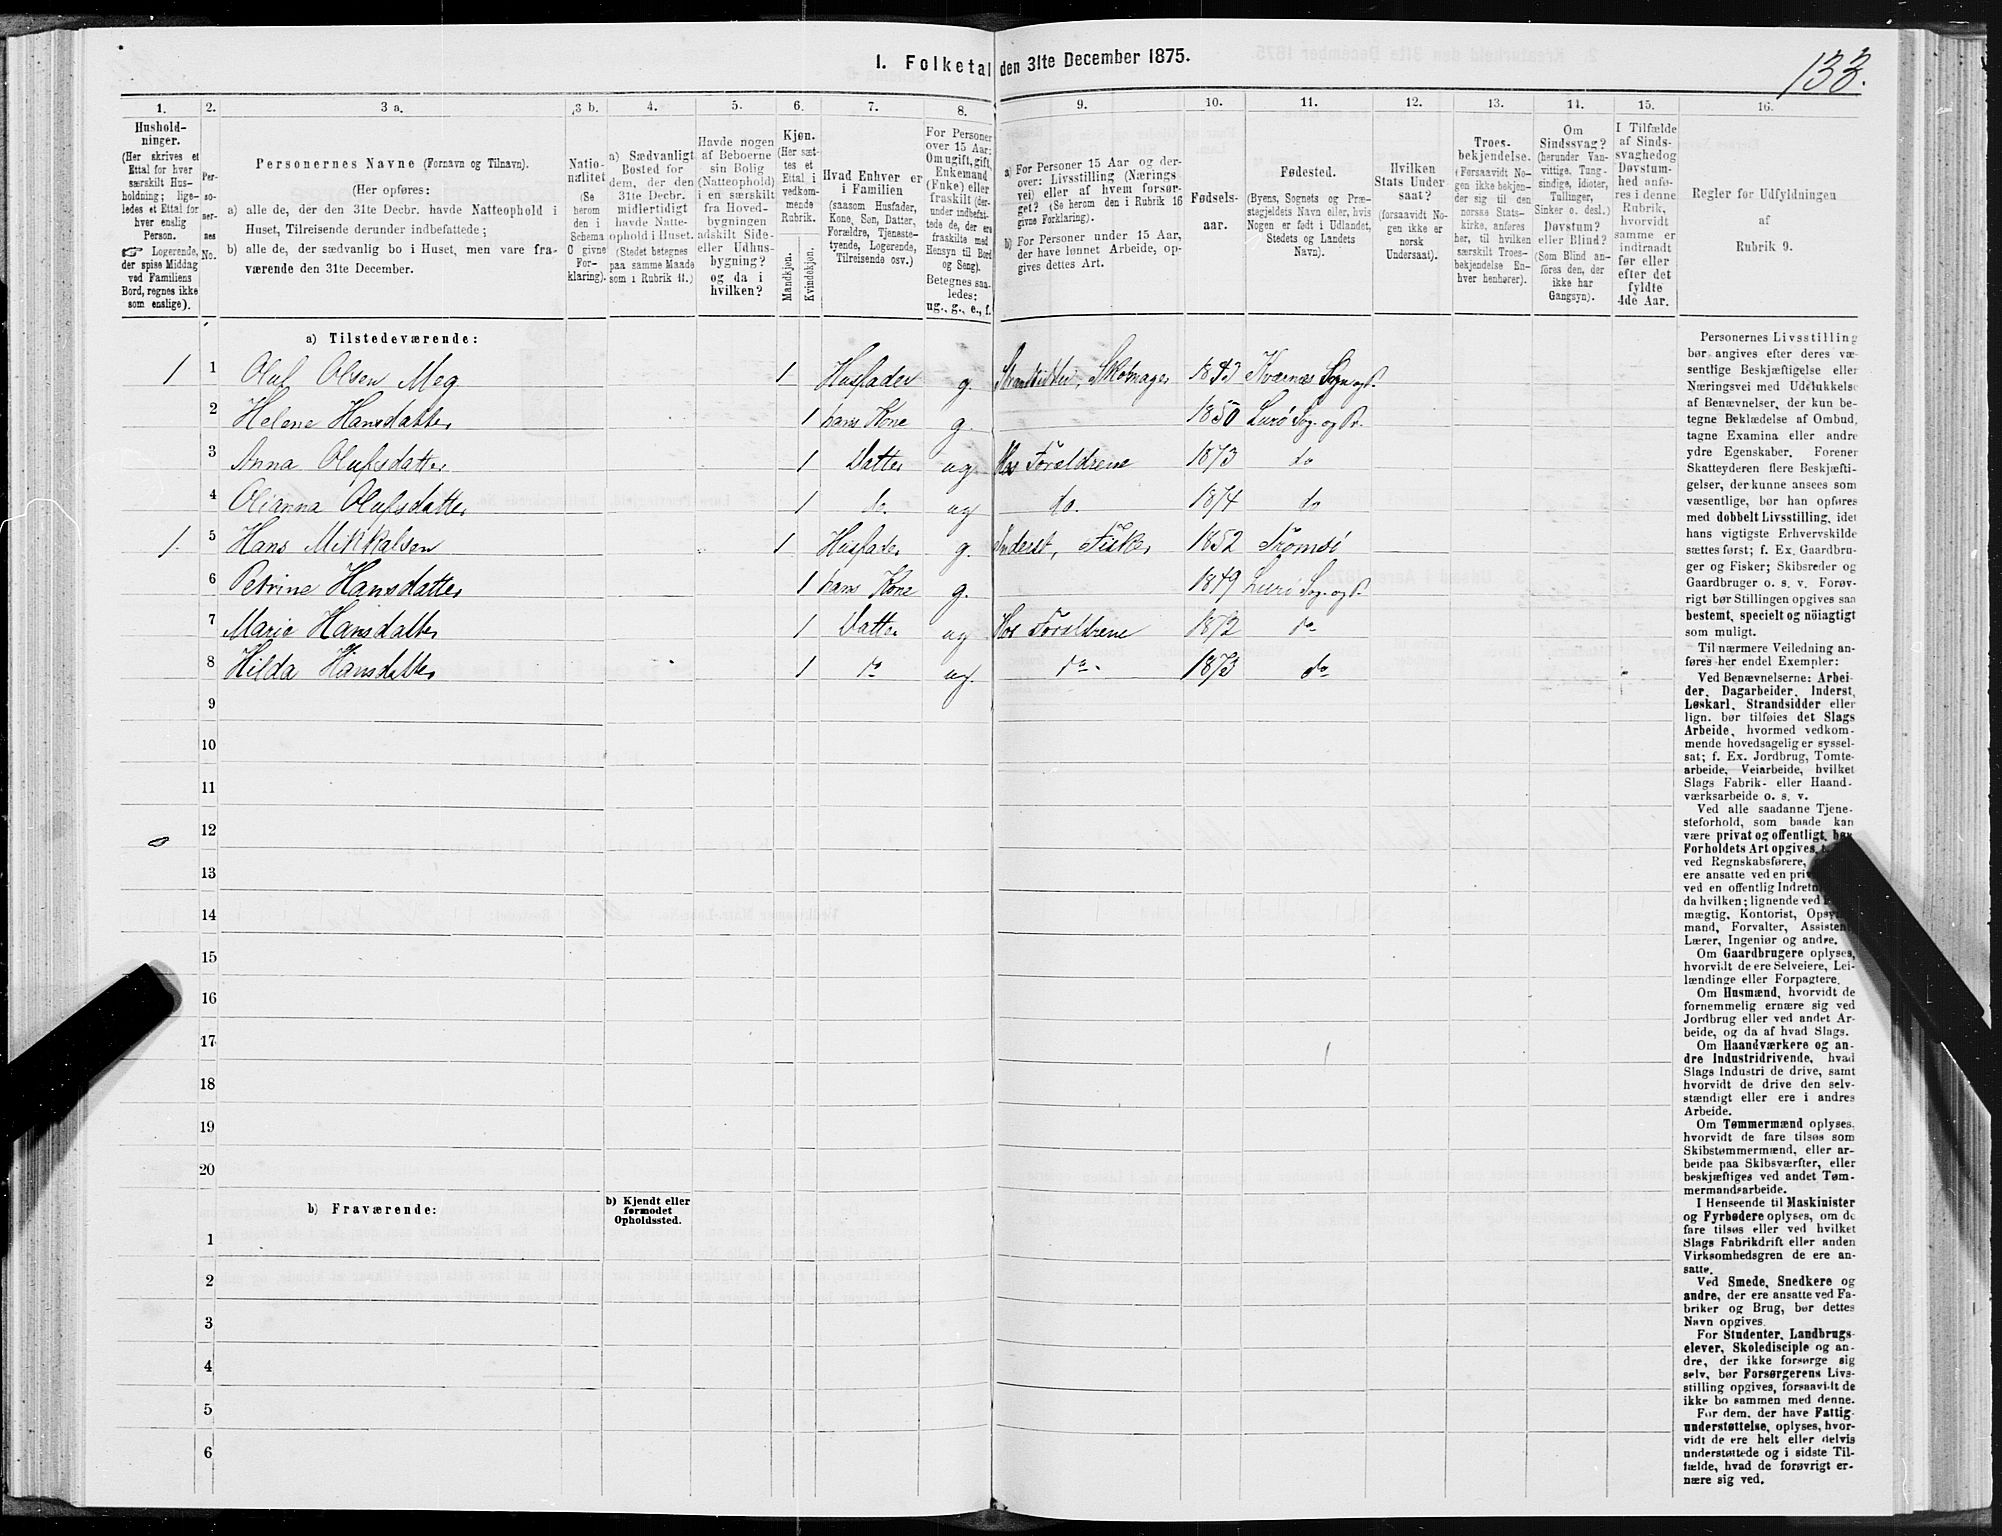 133.
1. Folketal den 31te December 1875.
1. 2. 3 a. 3 b. 4. 5. 6. 7. 8. 9. 10. 11. 12. 13. 14. 15. 16.
Hushold-
ninger.
(Her skrives et
Ettal for hver
særskilt Hus-
holdning; lige-
ledes et Ettal for
hver enslig
Person.
☞ Logerende,
der spise Middag
ved Familiens
Bord, regnes ikke
som enslige).
Per-
so-
ner-
nes
No.
Personernes Navne (Fornavn og Tilnavn).
(Her opføres:
a) alle de, der den 31te Decbr. havde Natteophold i
Huset, Tilreisende derunder indbefattede;
b) alle de, der sædvanlig bo i Huset, men vare fra-
værende den 31te December.
Natio-
nalitet
(Se
herom
den i
Schema
O givne
For-
klaring).
a) Sædvanligt
Bosted for
dem, der den
31te Decbr.
midlertidigt
havde Natte-
ophold i Huset.
(Stedet betegnes
paa samme Maade
som i Rubrik 11.)
Havde nogen
af Beboerne
sin Bolig
(Natteophold)
i en særskilt
fra Hoved-
bygningen
adskilt Side-
eller Udhus-
bygning?
og da i
hvilken?
Kjøn.
(Her sæt-
tes et
Ettal i
vedkom-
mende
Rubrik.
Mandkjøn.
Kvindekjøn.
Hvad Enhver er
i Familien
(saasom Husfader,
Kone, Søn, Datter,
Forældre, Tjeneste-
tyende, Logerende,
Tilreisende osv.)
For Personer
over 15 Aar:
Om ugift, gift,
Enkemand
(Enke) eller
fraskilt (der-
under indbefat-
tede de, der ere
fraskilte med
Hensyn til Bord
og Seng).
Betegnes saa-
ledes:
ug., g., e., f.
a) For Personer 15 Aar og der-
over: Livsstilling (Nærings
vei) eller af hvem forsør-
get? (Se herom den i Rubrik 16
givne Forklaring).
b) For Personer under 15 Aar,
der have lønnet Arbeide, op-
gives dettes Art.
Fødsels-
aar.
Fødested.
(Byens, Sognets og Præ-
stegjeldets Navn eller, hvis
Nogen er født i Udlandet,
Stedets og Landets
Navn).
Hvilken
Stats Under
saat?
(forsaavidt No-
gen ikke er
norsk
Undersaat).
Troes-
bekjendelse.
(Forsaavidt No-
gen ikke bekjen-
der sig til den
norske Stats-
kirke, anføres
her, til hvilken
særskilt Troes-
bekjendelse En-
hver henhører).
Om
Sindssvag?
(herunder Van-
vittige, Tung-
sindige, Idioter,
Tullinger,
Sinker o. desl.)
Døvstum?
eller Blind?
(Som Blind an-
føres den, der
ikke har
Gangsyn).
I Tilfælde
af Sinds-
svaghed og
Døvstum-
hed anfø-
res i denne
Rubrik,
hvorvidt
samme er
indtraadt
før eller
efter det
fyldte
4de Aar.
Regler for Udfyldningen
af
Rubrik 9.
a) Tilstedeværende:
1 1 Oluf Olsen Meg 1 Husfader g. Strandsidder, Skomager 1843 Kværnæs Sogn og P.
2 Helene Hansdatter 1 hans Kone g. 1850 Lurø Sog. og Pr.
3 Anna Olufsdatter 1 Datter ug Hos Forældrene 1873 do
4 Olianna Olufsdatter 1 do. ug do. 1874 do
1. 5 Hans Mikkalsen 1 Husfader g. Inderst, Fisker 1852 Tromsö
6 Petrine Hansdatter 1 hans Kone g. 1849 Lurö Sog. og P.
7 Marie Hansdatter 1 Datter ug Hos Forældrene 1872 do
8 Hilda Hansdatter 1 do ug. do. 1873 do
9
10
11
12
13
14
15
16
17
18
19
20
b) Fraværende:
b) Kjendt eller
formodet
Opholdssted.
1
2
3
4
5
6
Personernes Livsstilling
bør angives efter deres væ-
sentlige Beskjæftigelse eller
Næringsvei med Udelukkelse
af Benævnelser, der kun be-
tegne Beklædelse af Ombud,
tagne Examina eller andre
ydre Egenskaber. Forener
Skatteyderen flere Beskjæfti-
gelser, der kunne ansees som
væsentlige, bør han opføres
med dobbelt Livsstilling, idet
hans vigtigste Erhvervskilde
sættes først; f. Ex. Gaardbru-
ger og Fisker; Skibsreder og
Gaardbruger o. s. v. Forøv-
rigt bør Stillingen opgives saa
bestemt, specielt og nöiagtigt
som muligt.
Til nærmere Veiledning an-
føres her endel Exempler:
Ved Benævnelserne: Arbei-
der, Dagarbeider, Inderst,
Løskarl, Strandsidder eller
lign. bør tilføies det Slags
Arbeide, hvormed vedkom-
mende hovedsagelig er syssel-
sat; f. Ex. Jordbrug, Tomte-
arbeide, Veiarbeide, hvilket
Slags Fabrik- eller Haand-
værksarbeide o. s. v.
Ved alle saadanne Tjene-
steforhold, som baade kan
være privat og offentligt, bør
Forholdets Art opgives,
ved Regnskabsførere,
ere ansatte ved en pri
ved en offentlig Indretn
da hvilken; lignende ved
mægtig, Kontorist, Opsy
mand, Forvalter, Assistent
Lærer, Ingeniør og andre.
Om Gaardbrugere oplyses,
hvorvidt de ere Selveiere, Lei-
lændinge eller Forpagtere.
Om Husmænd, hvorvidt de
fornemmelig ernære sig ved
Jordbrug eller ved andet Ar-
beide, og da af hvad Slags.
Om Haandværkere og an-
dre Industridrivende, hvad
Slags Industri de drive, samt
hvorvidt de drive den selv-
stændigt eller ere i andres
Arbeide.
Om Tømmermænd oplyses,
hvorvidt de fare tilsøs som
Skibstømmermænd, eller ar-
beide paa Skibsværfter, eller
beskjæftiges ved andet Tøm-
mermandsarbeide.
I Henseende til Maskinister
og Fyrbødere oplyses, om de
fare tilsøs eller ved hvilket
Slags Fabrikdrift eller anden
Virksomhedsgren de ere an-
satte.
Ved Smede, Snedkere og
andre, der ere ansatte ved Fa-
briker og Brug, bør dettes
Navn opgives.
For Studenter, Landbrugs-
elever, Skoledisciple og an-
dre, der ikke forsørge sig
selv, bør Forsørgerens Livs-
stilling opgives, forsaavidt de
ikke bo sammen med denne.
For dem, der have Fattig-
understøttelse, oplyses, hvor-
vidt de ere helt eller delvis
understøttede og i sidste Til-
fælde, hvad de forøvrigt er-
nære sig ved.